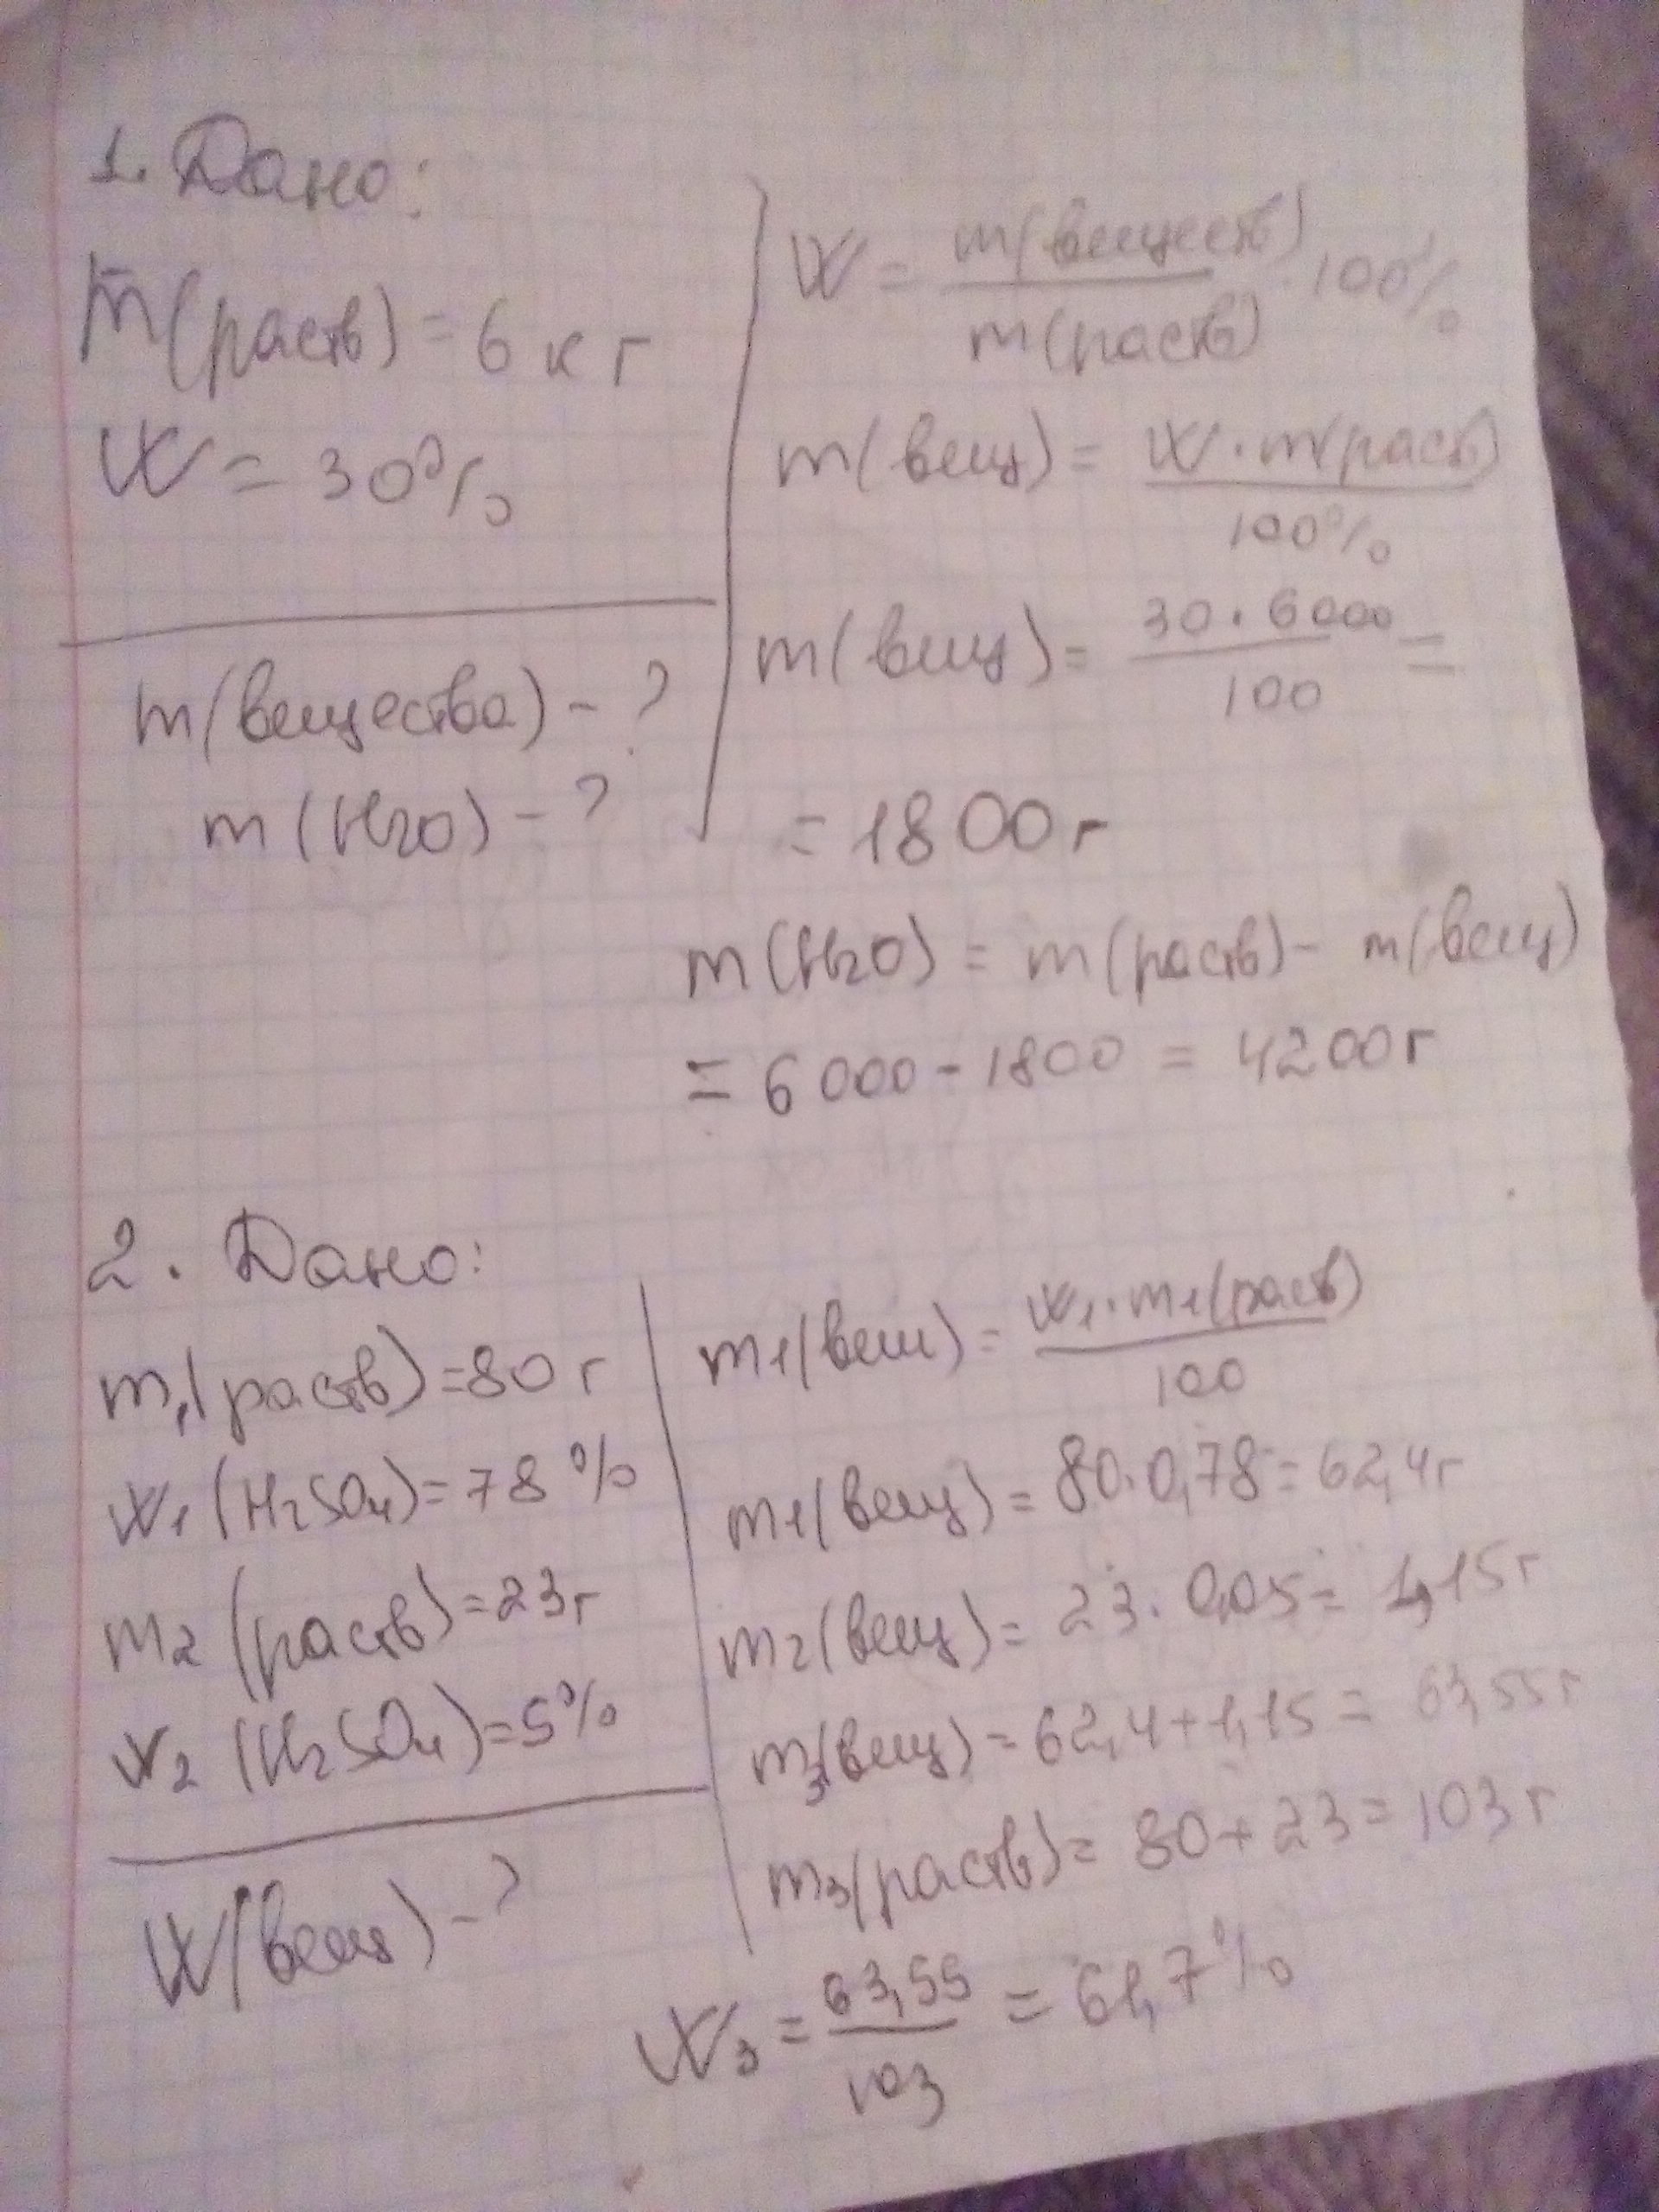 1. Дано:
m(раств) = 6 кг
W = 30%
m(вещества) - ?
m(H2O) - ?
W = m(веществ) / m(раств) · 100%
m(вещ) = W · m(раств) / 100%
m(вещ) = 30 · 6000 / 100 =
= 1800 г
m(H2O) = m(раств) - m(вещ)
= 6000 - 1800 = 4200 г
2. Дано:
m1(раств) = 80 г
W1 (H2SO4) = 78 %
m2 (раств) = 23 г
W2 (H2SO4) = 5%
W(вещ) - ?
m1(вещ) = W1 · m1(раств) / 100
m1(вещ) = 80 · 0,78 = 62,4 г
m2(вещ) = 23 · 0,05 = 1,15 г
m3(вещ) = 62,4 + 1,15 = 63,55 г
m3(раств) = 80 + 23 = 103 г
W3 = 63,55 / 103 = 61,7%